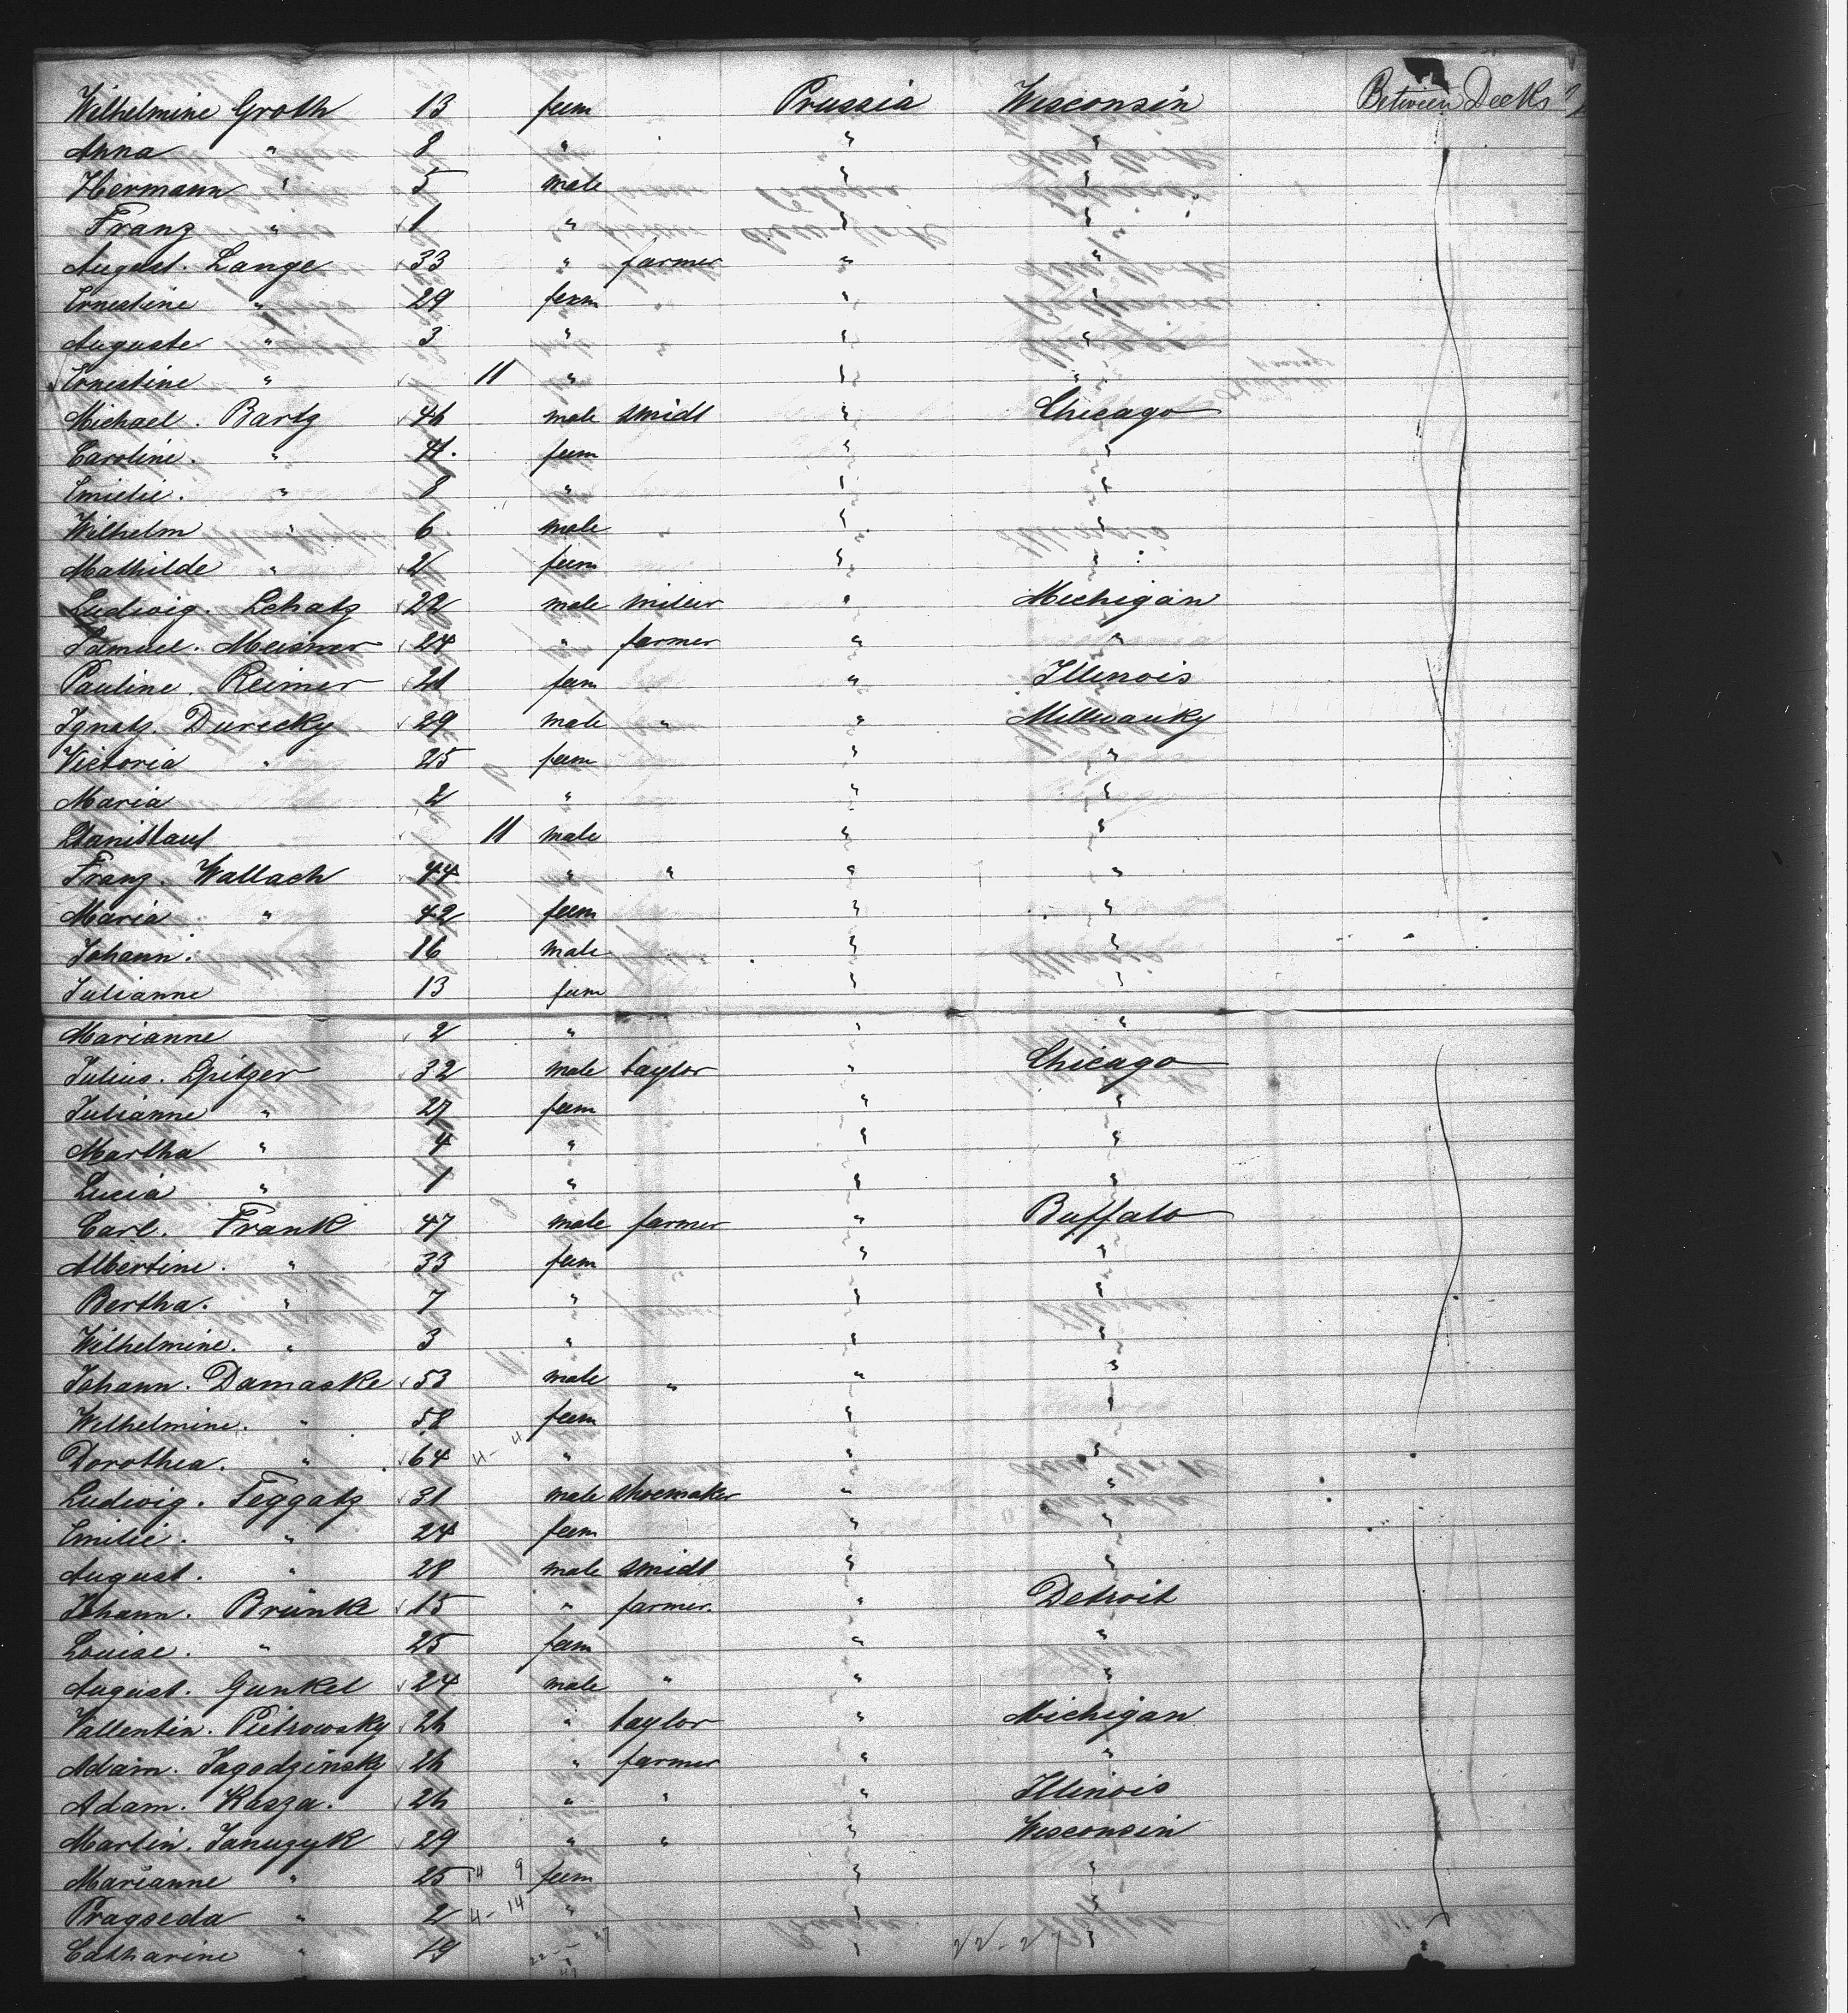 Wilhelmine Groth 13 fem Prussia Wisconsin Between Decks
Anna " 8 " " "
Hermann " 5 male " "
Franz " 1 " " "
August. Lange 33 " farmer " "
Ernestine " 29 fem " "
Auguste " 3 " " "
Ernestine " 11 " " "
Michael. Bartz 46 male smidt " Chicago
Caroline. " 41. fem " "
Emielie. " 8 " " "
Wilhelm " 6 male " "
Mathilde " 2 fem " "
Ludwig. Schatz 28 male miller " Michigan
Samuel. Meisner 24 " farmer " "
Pauline. Reimer 21 fem " Illinois
Ignatz. Durecky 29 male " " Millwauky
Victoria " 25 fem " "
Maria 2 " " "
Stanislaus 11 male " "
Franz. Wallach 44 " " " "
Maria " 42 fem " "
Johann. 16 male " "
Julianne 13 fem " "
Marianne 2 " " "
Julius. Spitzer 32 male taylor " Chicago
Julianne " 27 fem " "
Martha " 4 " " "
Lucia " 1 " " "
Carl. Frank 47 male farmer " Buffalo
Albertine. " 33 fem " "
Bertha. " 7 " " "
Wilhelmine. " 3 " " "
Johann. Damaske 53 male " " "
Wilhelmine. " 58 fem " "
Dorothea. " 64 " " "
Ludwig. Teggatz 31 male shoemaker " "
Emilie. " 24 fem " "
August. " 28 male smidt " "
Johann. Brünke 15 " farmer. " Detroit
Louise. " 25 fem " "
August. Gunkel 24 male " " "
Vallentin. Pietrowsky 26 " taylor " Michigan
Adam. Jagodzinsky 26 " farmer " "
Adam. Kasza. 26 " " " Illinois
Martin. Januzyk 29 " " " Wisconsin
Marianne " 25 fem " "
Pragseda " 2 4-14 " " "
Catharine " 19 " "